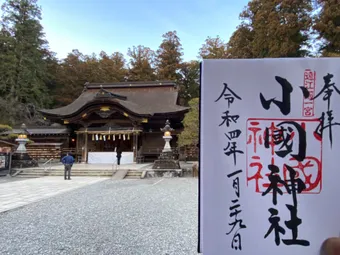 奉拝
遠江一宮
小國神社
令和四年一月二十九日